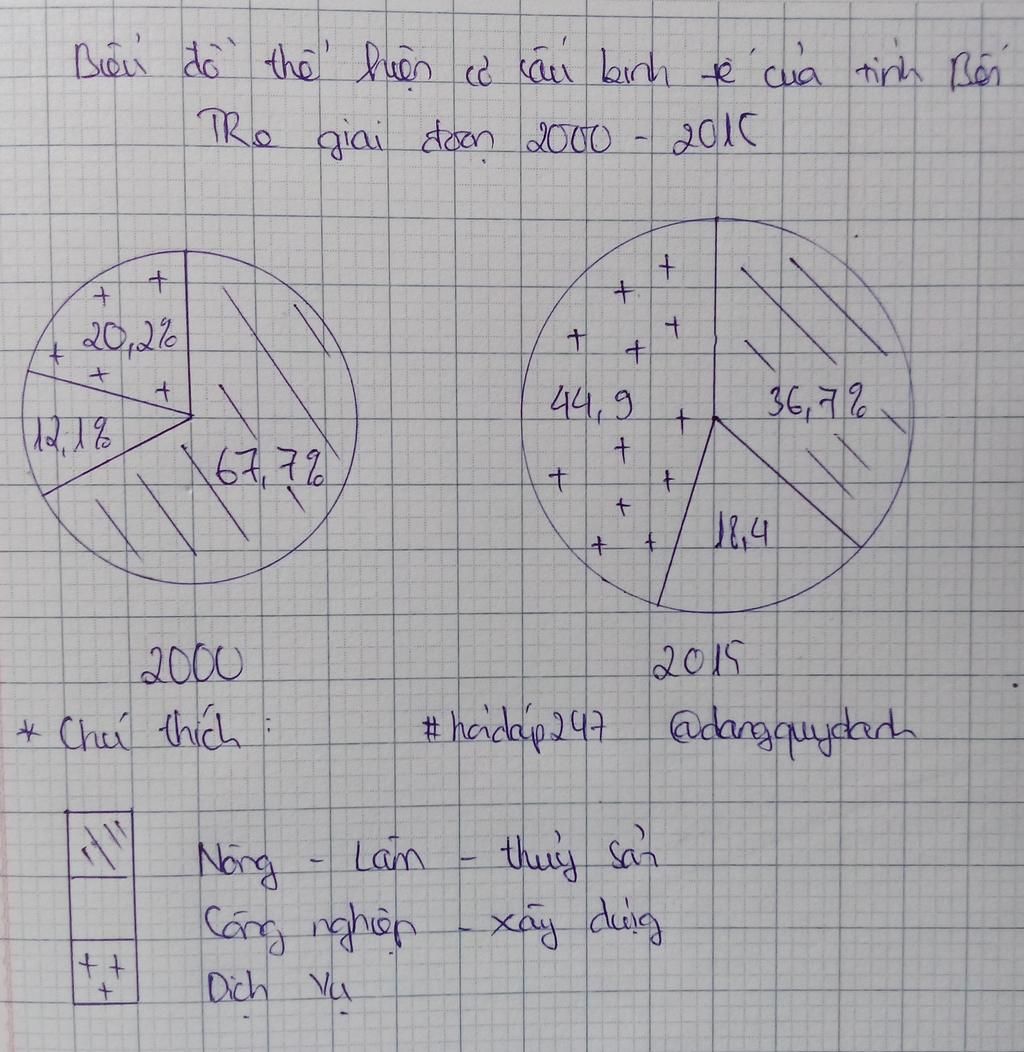 Biểu đồ thể hiện cơ cấu kinh tế của tỉnh Bến
TRe giai đoạn 2000 - 2015
20,2%
12,1%
67,7%
44,9
36,7%
18,4
2000
2015
* Chú thích : #hoidap247 @dangquydanh
Nông - Lâm - thuỷ sản
Công nghiệp - xây dựng
Dịch vụ